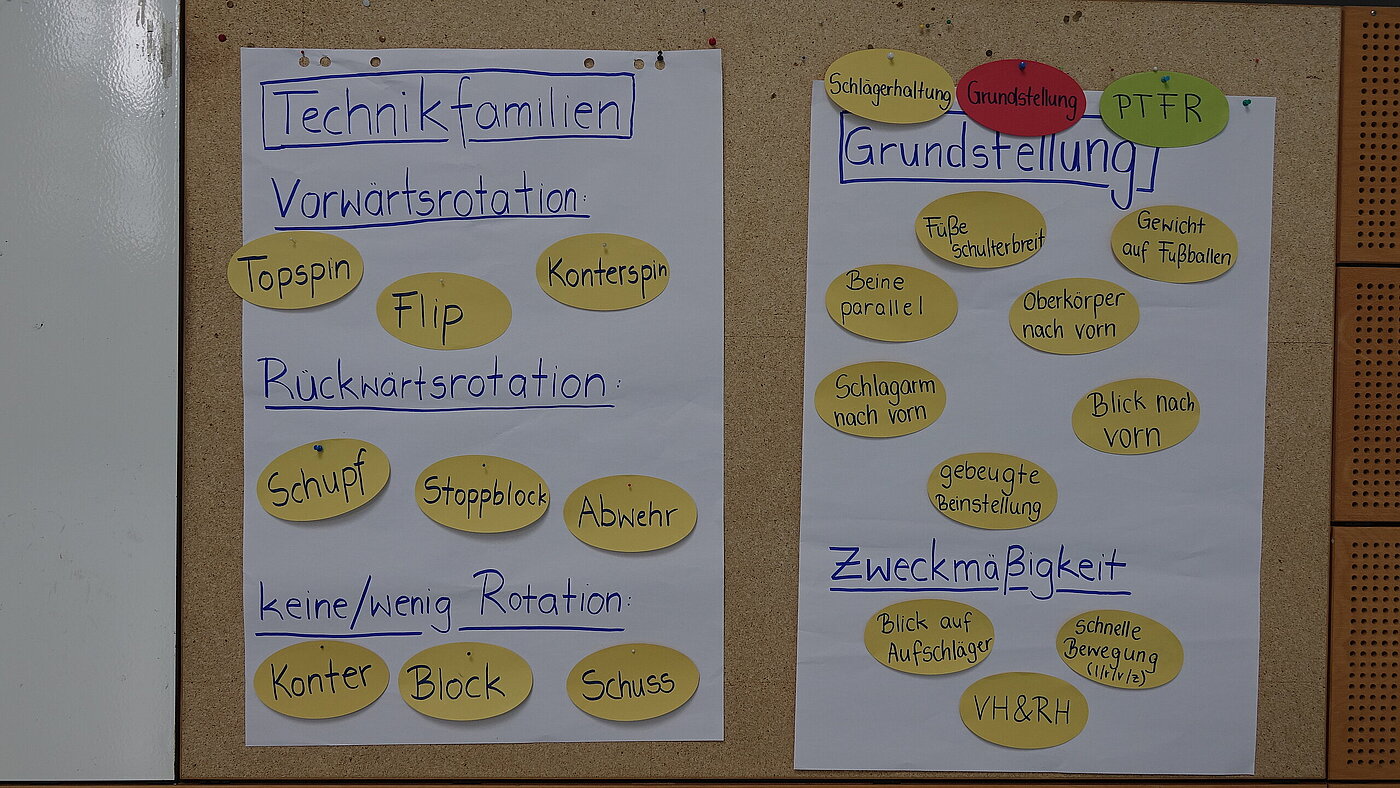 Technikfamilien
Vorwärtsrotation:
Topspin
Flip
Konterspin
Rückwärtsrotation:
Schupf
Stoppblock
Abwehr
keine/wenig Rotation:
Konter
Block
Schuss
Schlägerhaltung
Grundstellung
PTFR
Grundstellung
Füße
schulterbreit
Gewicht
auf Fußballen
Beine
parallel
Oberkörper
nach vorn
Schlagarm
nach vorn
Blick nach
vorn
gebeugte
Beinstellung
Zweckmäßigkeit
Blick auf
Aufschläger
schnelle
Bewegung
(l/r/v/z)
VH&RH